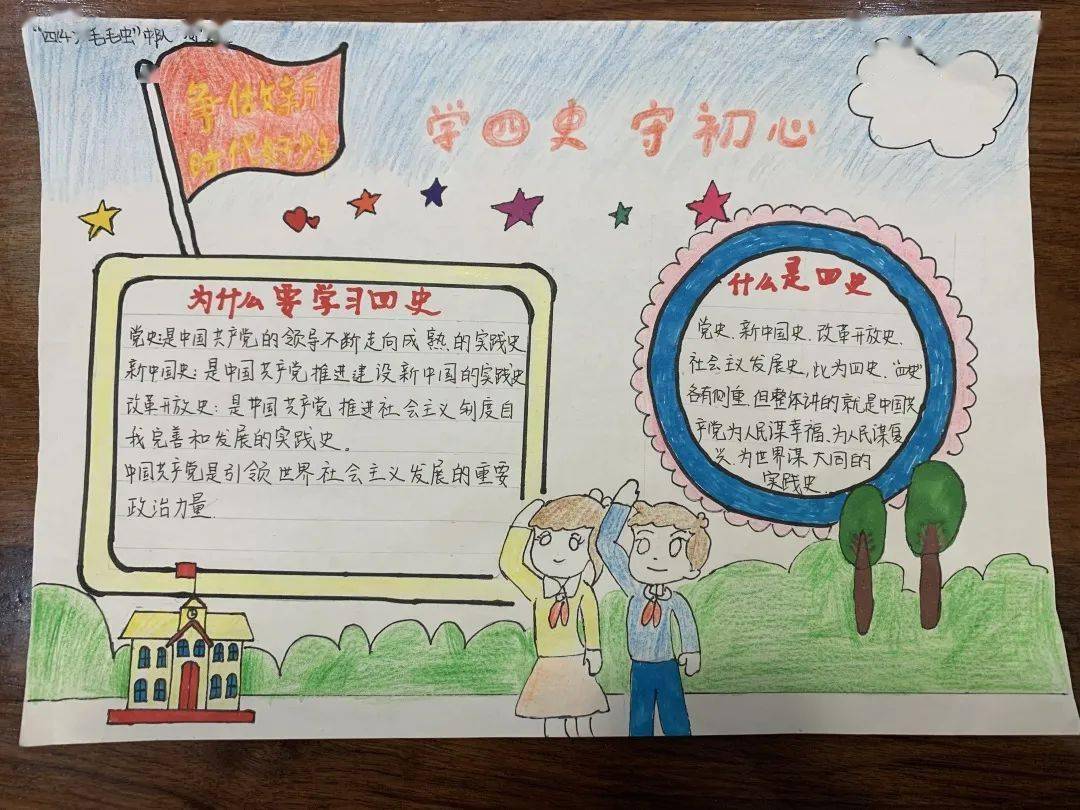 毛毛虫"中队
争做新
时代好少年
学四史 守初心
为什么要学习四史
党史:是中国共产党的领导不断走向成熟的实践史
新中国史:是中国共产党推进建设新中国的实践史
改革开放史:是中国共产党推进社会主义制度自
我完善和发展的实践史。
中国共产党是引领世界社会主义发展的重要
政治力量.
什么是四史
党史、新中国史、改革开放史、
社会主义发展史,此为四史、"四史"
各有侧重,但整体讲的就是中国共
产党为人民谋幸福、为人民谋复
兴、为世界谋大同的
实践史.